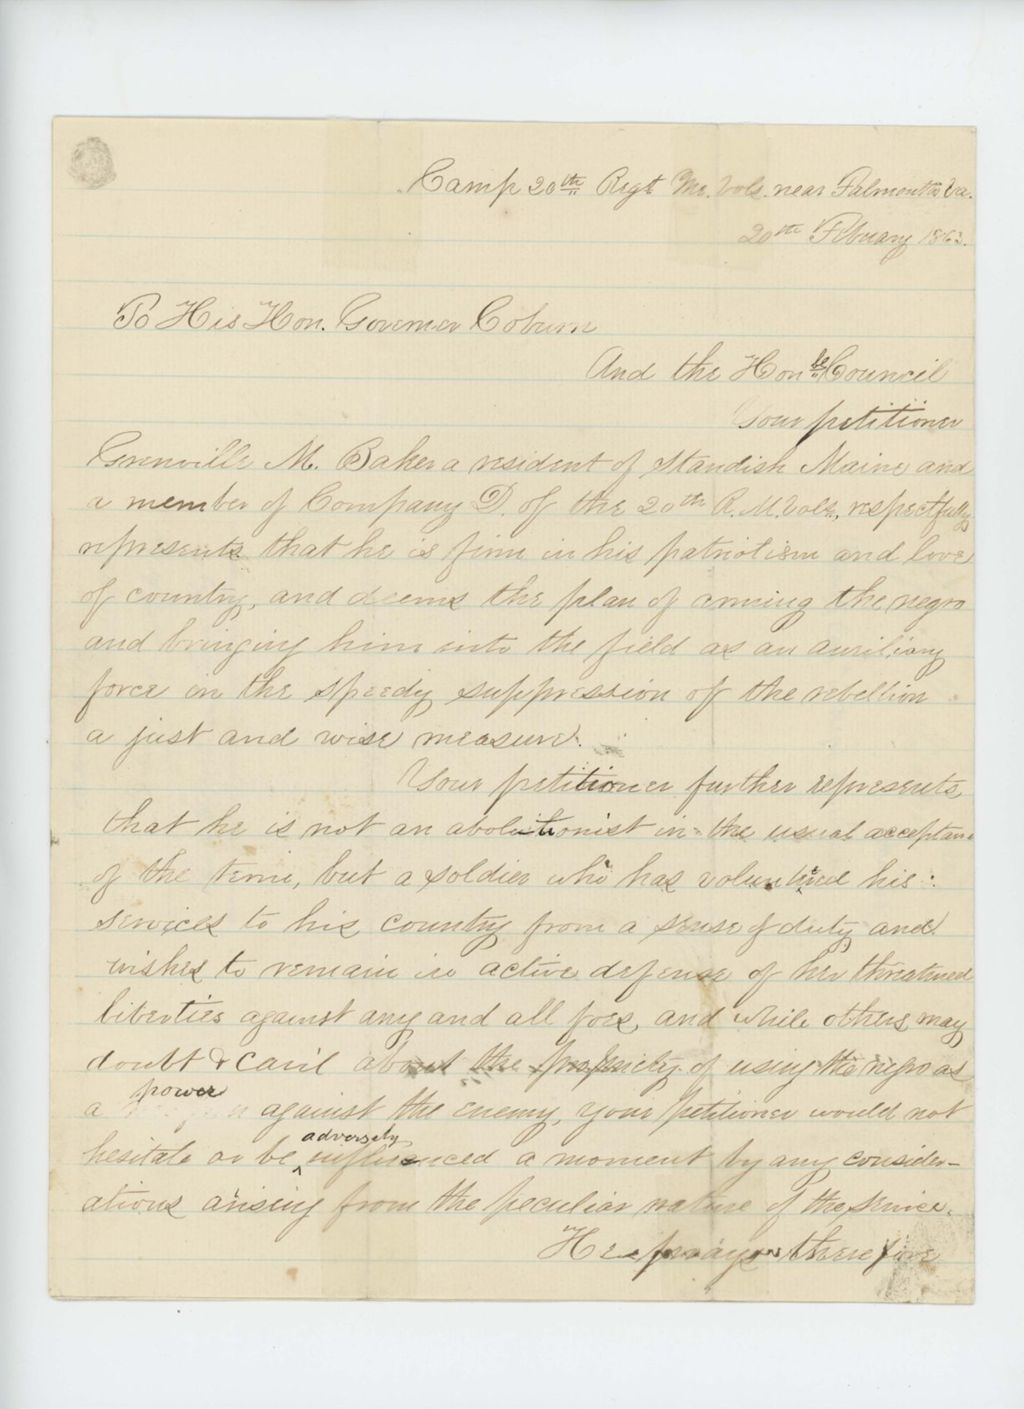 Camp 20th Regt Me. Vols. near Falmouth Va.
20th February 1863.
To His Hon. Governer Coburn
And the Honble Council
Your petitioner
Grenville M. Baker a resident of Standish Maine and
a member of Company D. of the 20th R. M. Vols, respectfully
represents that he is firm in his patriotism and love
of country, and deems the plan of arming the negro
and bringing him into the field as an auxiliary
force in the speedy suppression of the rebellion
a just and wise measure.
Your petitioner further represents
that he is not an abolitionist in the usual acceptance
of the term, but a soldier who has voluntered his
services to his country from a sense of duty and
wishes to remain in active defense of her threatened
liberties against any and all foes, and while others may
doubt & cavil about the propriety of using the negro as
a power against the enemy, your petitioner would not
hesitate or be adversely influenced a moment by any consider-
ations arising from the peculiar nature of the service.
He prays therefore